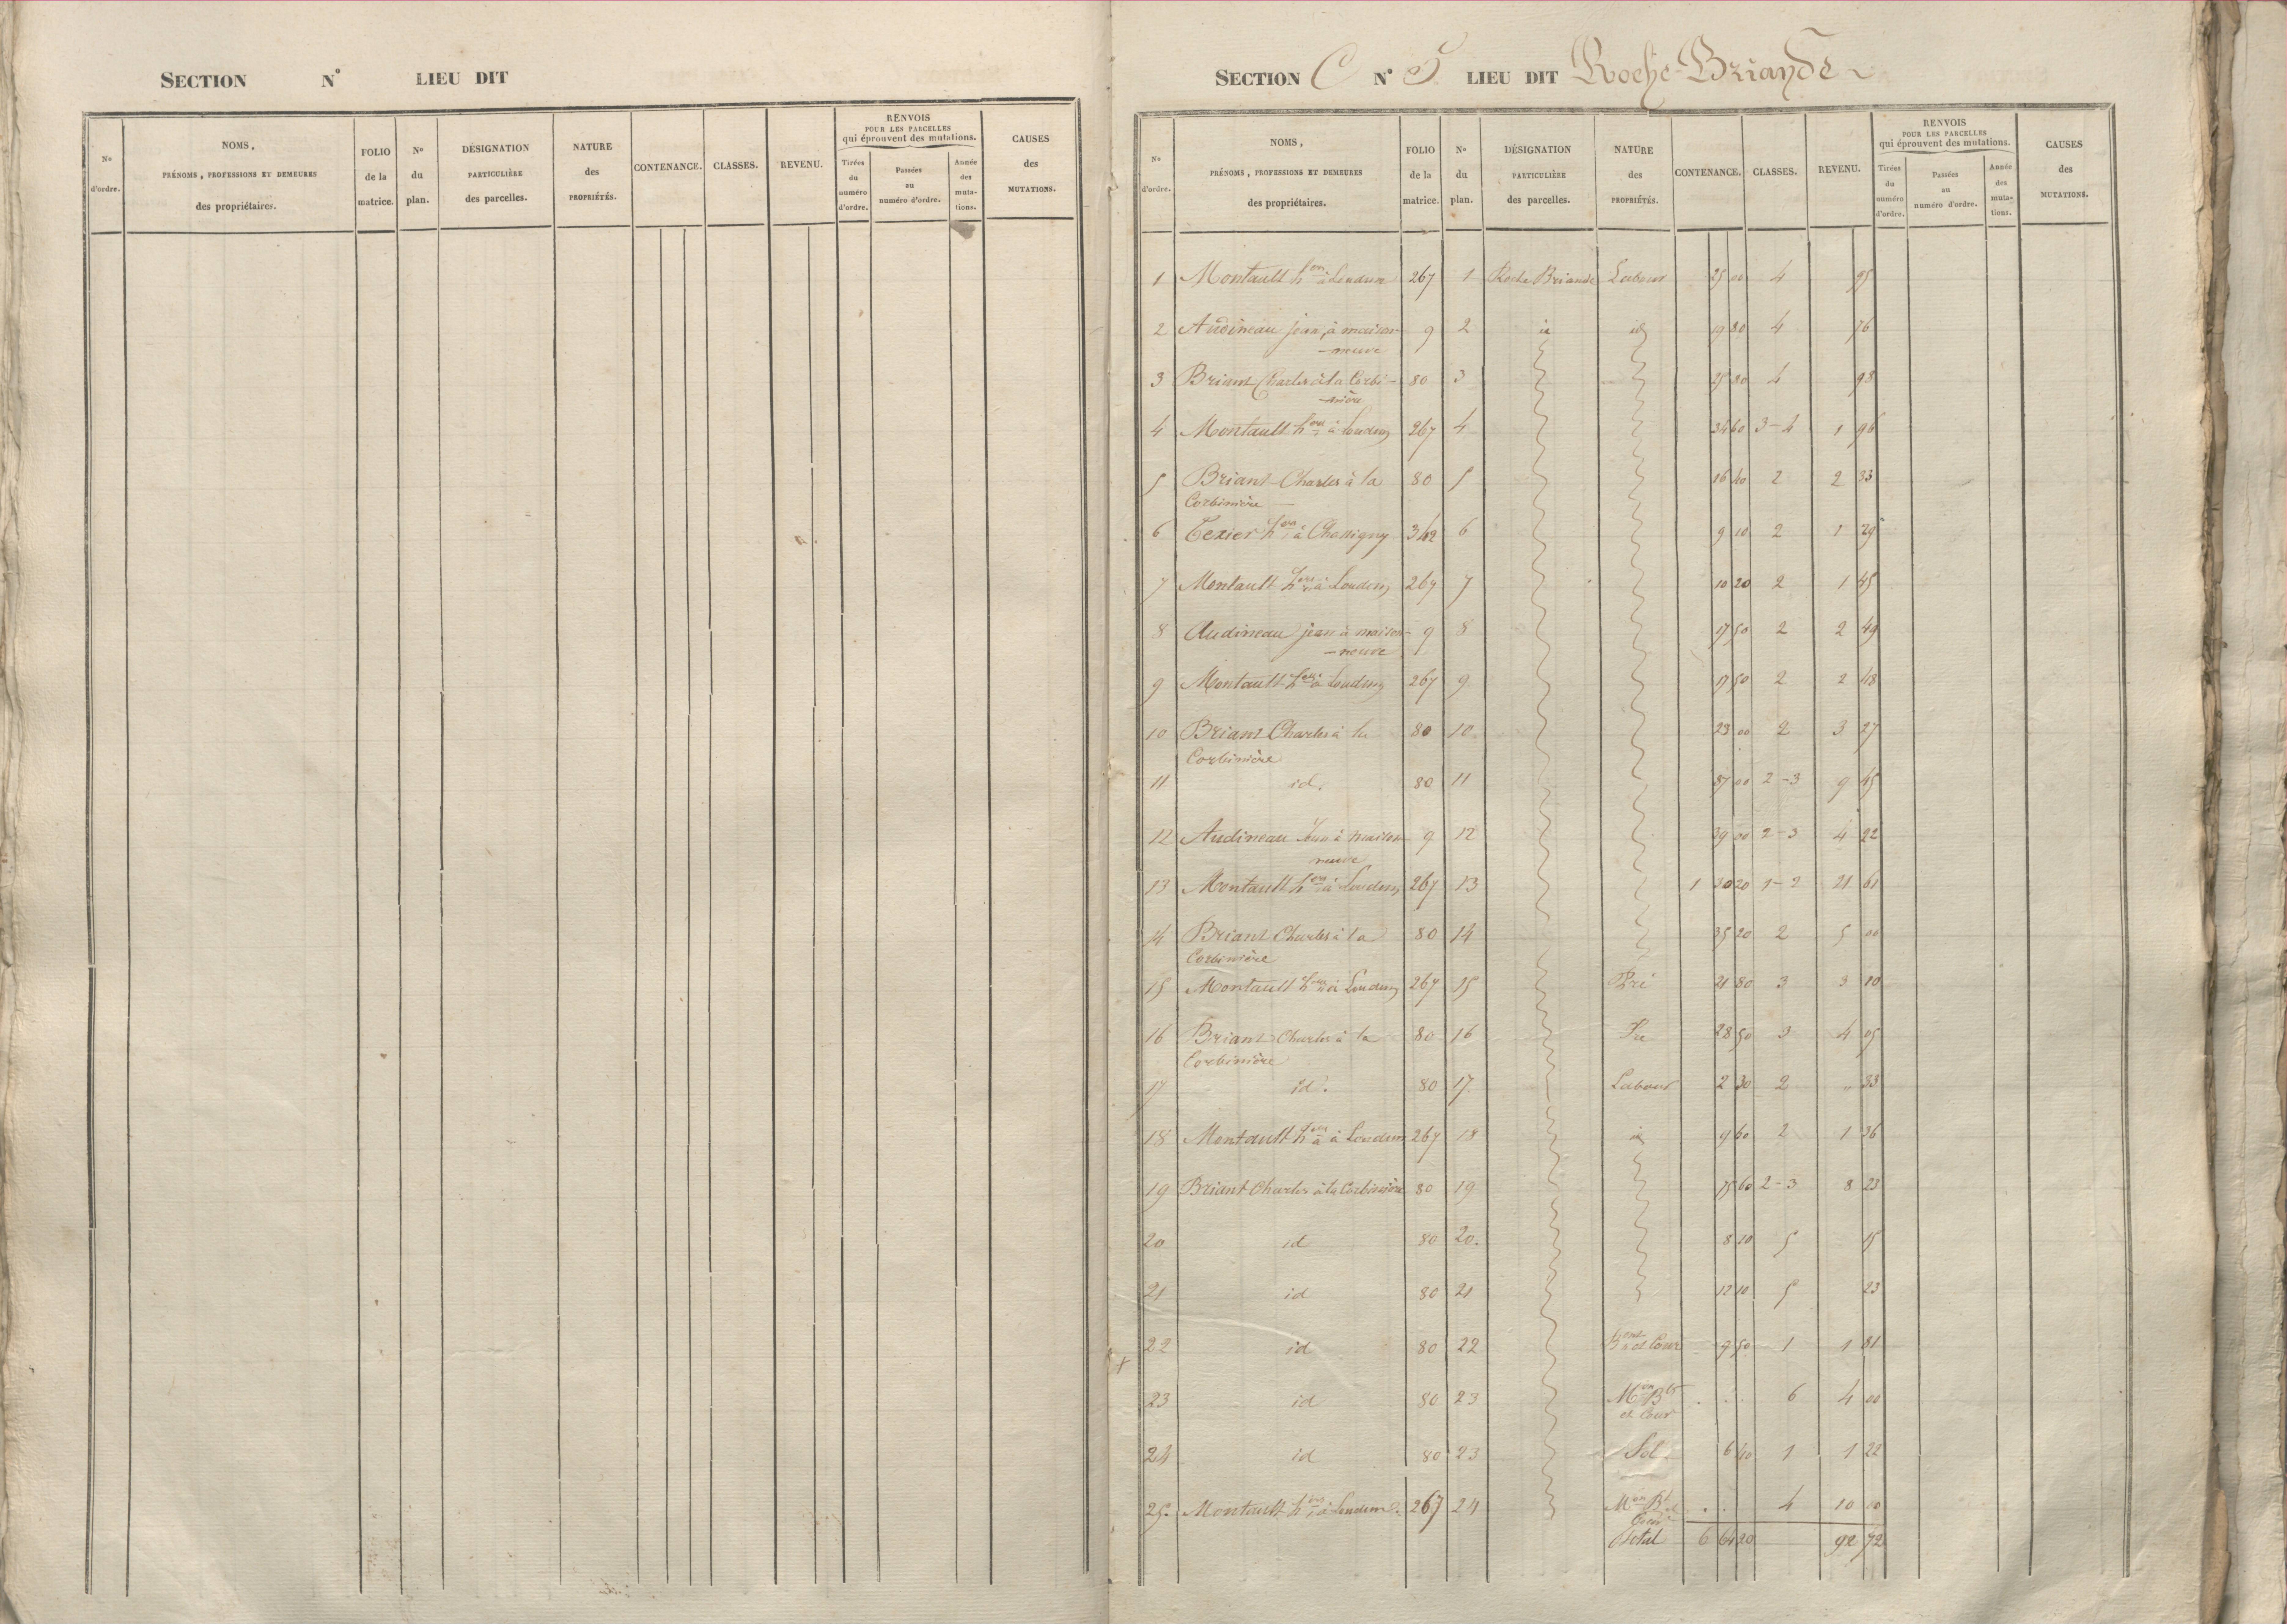 SECTION N° LIEU DIT
No d'ordre. NOMS, PRÉNOMS, PROFESSIONS ET DEMEURES des propriétaires. FOLIO de la matrice. No du plan. DÉSIGNATION PARTICULIÈRE des parcelles. NATURE des PROPRIÉTÉS. CONTENANCE. CLASSES. REVENU. RENVOIS POUR LES PARCELLES qui éprouvent des mutations. Tirées du numéro d'ordre. Passées au numéro d'ordre. Année des muta-tions. CAUSES des MUTATIONS.
SECTION C N° 5 LIEU DIT Roche-Briande
No d'ordre. NOMS, PRÉNOMS, PROFESSIONS ET DEMEURES des propriétaires. FOLIO de la matrice. No du plan. DÉSIGNATION PARTICULIÈRE des parcelles. NATURE des PROPRIÉTÉS. CONTENANCE. CLASSES. REVENU. RENVOIS POUR LES PARCELLES qui éprouvent des mutations. Tirées du numéro d'ordre. Passées au numéro d'ordre. Année des muta-tions. CAUSES des MUTATIONS.
1 Montault à Loudun 267 1 Roche Briande Labour 25 00 4 95
2 Audineau jean, à maison- 9 2 id id 19 80 4 76
-neuve
3 Briant Charles à la Corbi- 80 3 25 80 4 98
-nière
4 Montault à Loudun 267 4 34 60 3-4 1 96
5 Briant Charles à la 80 5 16 40 2 2 33
Corbinière
6 Texier à Chassigny 342 6 9 10 2 1 29
7 Montault à Loudun 267 7 10 20 2 1 45
8 Audineau jean à maison- 9 8 17 50 2 2 49
-neuve
9 Montault à Loudun 267 9 17 50 2 2 48
10 Briant Charles à la 80 10 23 00 2 3 27
Corbinière
11 id. 80 11 87 00 2-3 9 45
12 Audineau Jean à maison- 9 12 39 00 2-3 4 22
neuve
13 Montault à Loudun 267 13 1 20 1-2 21 61
14 Briant Charles à la 80 14 35 20 2 5 00
Corbinière
15 Montault à Loudun 267 15 Pré 21 80 3 3 10
16 Briant Charles à la 80 16 Pré 28 50 3 4 05
Corbinière
17 id. 80 17 Labour 2 30 2 " 33
18 Montault à Loudun 267 18 id 9 60 2 1 36
19 Briant Charles à la Corbinière 80 19 75 60 2-3 8 23
20 id 80 20. 8 10 5 15
21 id 80 21 12 10 5 23
22 id 80 22 et Cour 9 50 1 1 81
23 id 80 23 Mon Bt 6 4 00
et Cour
24 id 80 23 Sol 6 40 1 1 22
25. Montault à Loudun 267 24 Mon Bt 4 10 00
Cour
Total 6 64 20 92 72